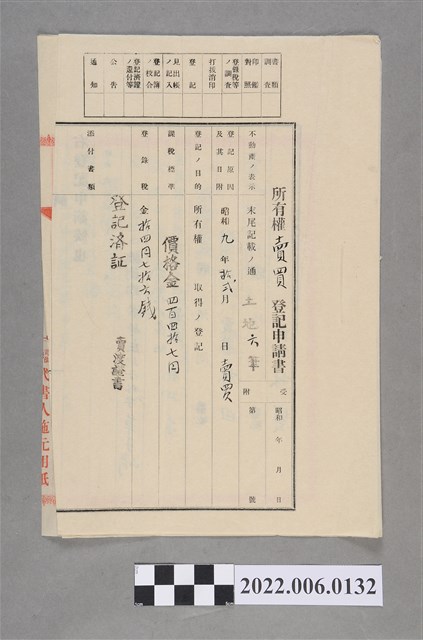 書類調査
印鑑対照
登錄税等ノ調査
打抜消印
登記
見出帳ノ記入
登記簿ノ校合
登記済證ノ還付等
公告
通知
所有權賣買登記申請書
受附
昭和 年 月 日
第 號
不動產ノ表示
末尾記載ノ通
土地六筆
登記原因及其日附
昭和九年拾弐月 日賣買
登記ノ目的
所有權 取得ノ登記
課税標準
價格金四百四拾七円
登錄税
金拾四円七拾六錢
添付書類
登記済証
賣渡証書
代書人
用紙
2022.006.0132